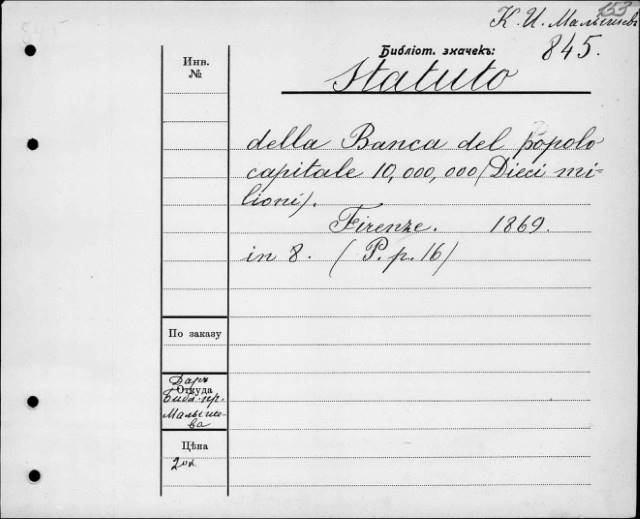 153
К. И. Малышевъ
Библіот. значекъ:
845.
Инв.
№
Statuto
della Banca del popolo
capitale 10,000,000 (Dieci mi=
lioni).
Firenze. 1869.
in 8. (P. p. 16)
По заказу
Даръ
Откуда
Библ. пр.
Малыше-
ва
Цѣна
20к